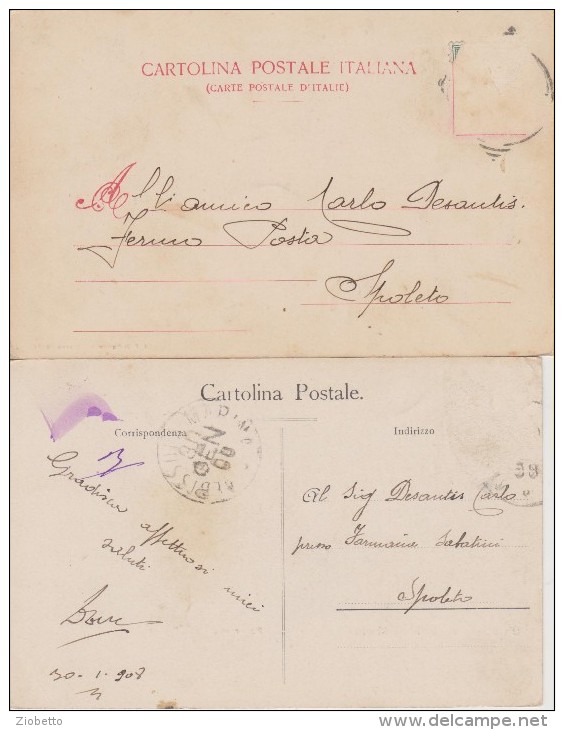 CARTOLINA POSTALE ITALIANA
(CARTE POSTALE D'ITALIE)
All'amico Carlo Desantis.
Fermo Posta
Spoleto
Cartolina Postale.
Corrispondenza
Indirizzo
Gradisca
affettuosi miei
saluti
30-1-908
Al Sig Desantis Carlo
presso Farmacia Sabatini
Spoleto
Ziobetto
delcampe.net